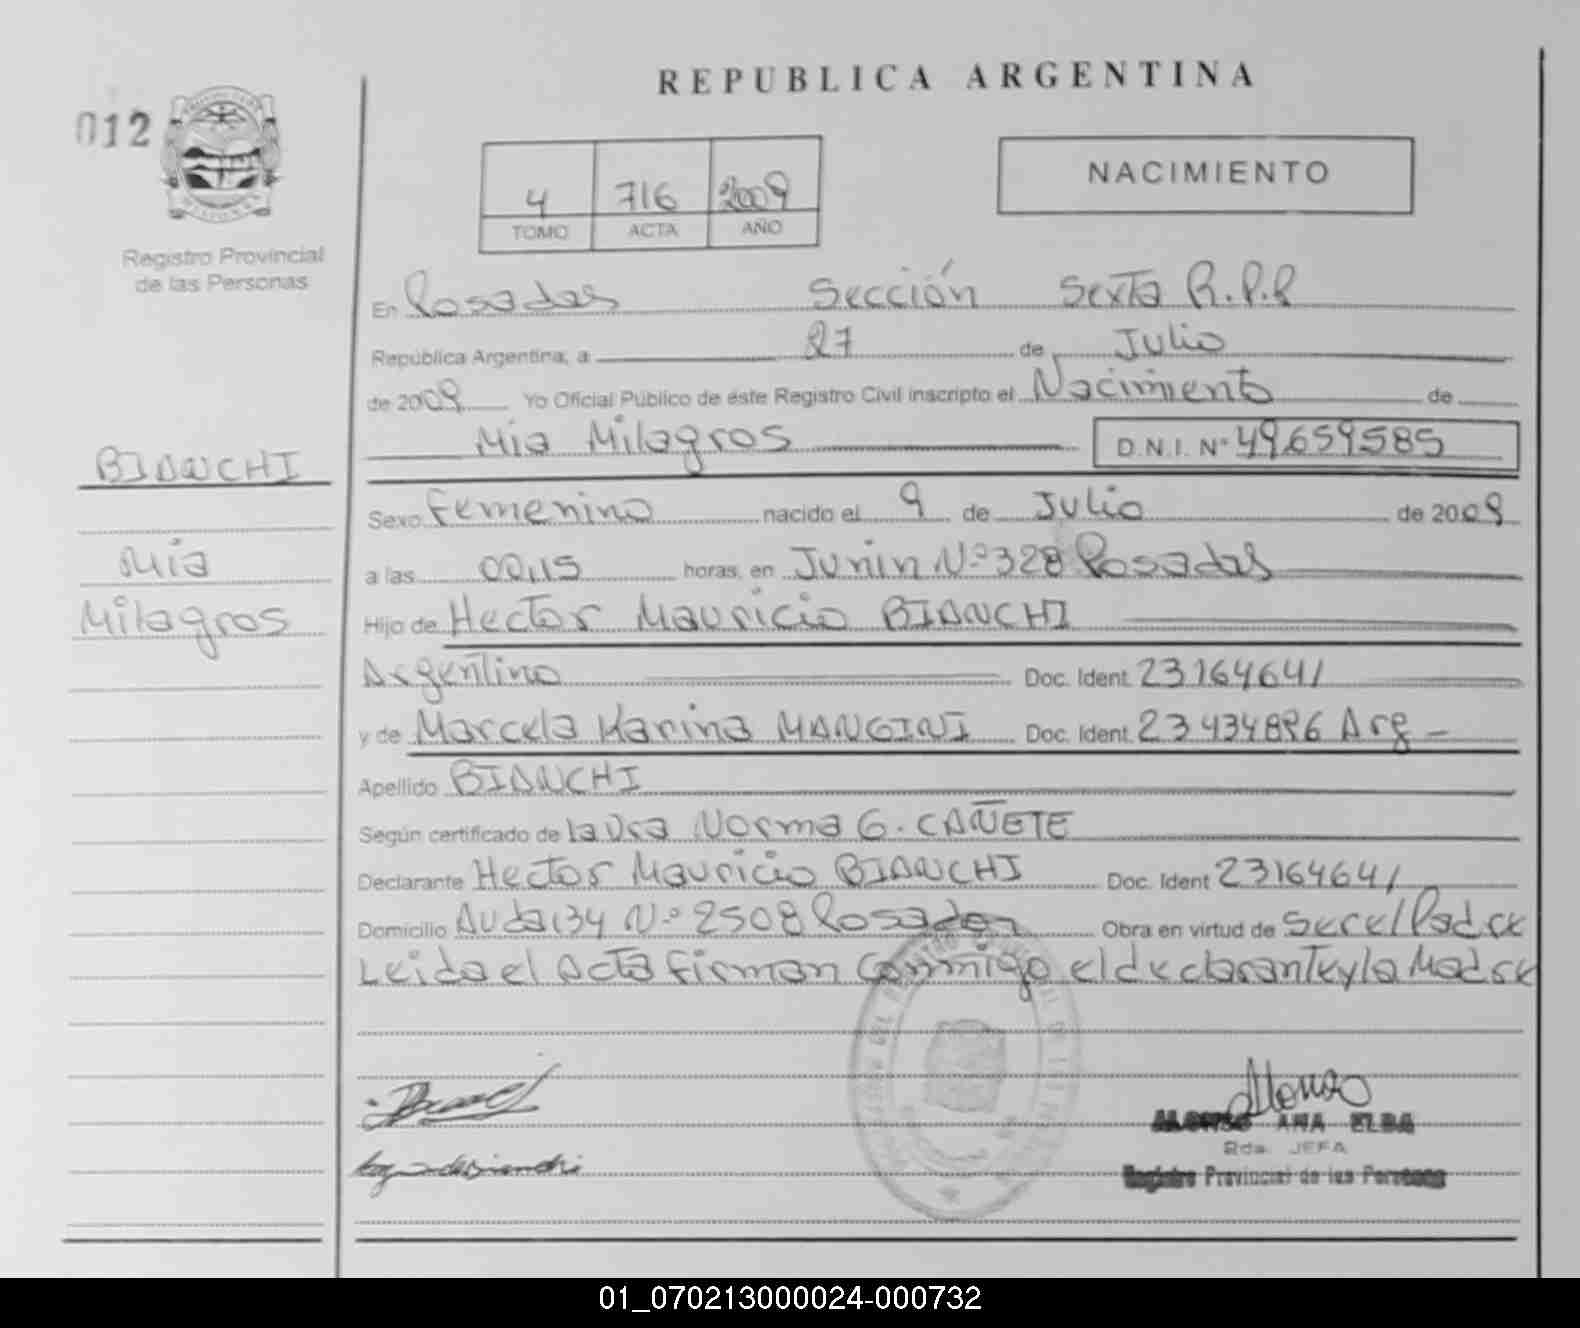 REPUBLICA ARGENTINA
012
NACIMIENTO
4 716 2009
TOMO ACTA AÑO
Registro Provincial
de las Personas
En Posadas Sección Sexta R.P.P
República Argentina, a 27 de Julio
de 2009 Yo Oficial Público de éste Registro Civil inscripto el Nacimiento de
Mia Milagros D.N.I. Nº 49.659.585
BIANCHI
Sexo Femenino nacido el 9 de Julio de 2009
Mia
a las 00,15 horas, en Junin Nº 328 Posadas
Milagros
Hijo de Hector Mauricio BIANCHI
Argentino Doc. Ident. 23164641
y de Marcela Karina MANGINI Doc. Ident. 23434896 Arg -
Apellido BIANCHI
Según certificado de la Dra Norma G. CAÑETE
Declarante Hector Mauricio BIANCHI Doc. Ident 23164641
Domicilio Avda 134 Nº 2508 Posadas Obra en virtud de ser el Padre
Leida el Acta firman conmigo el declarante y la Madre
ALONSO ANA ELBA
JEFA
Registro Provincial de las Personas
01_070213000024-000732